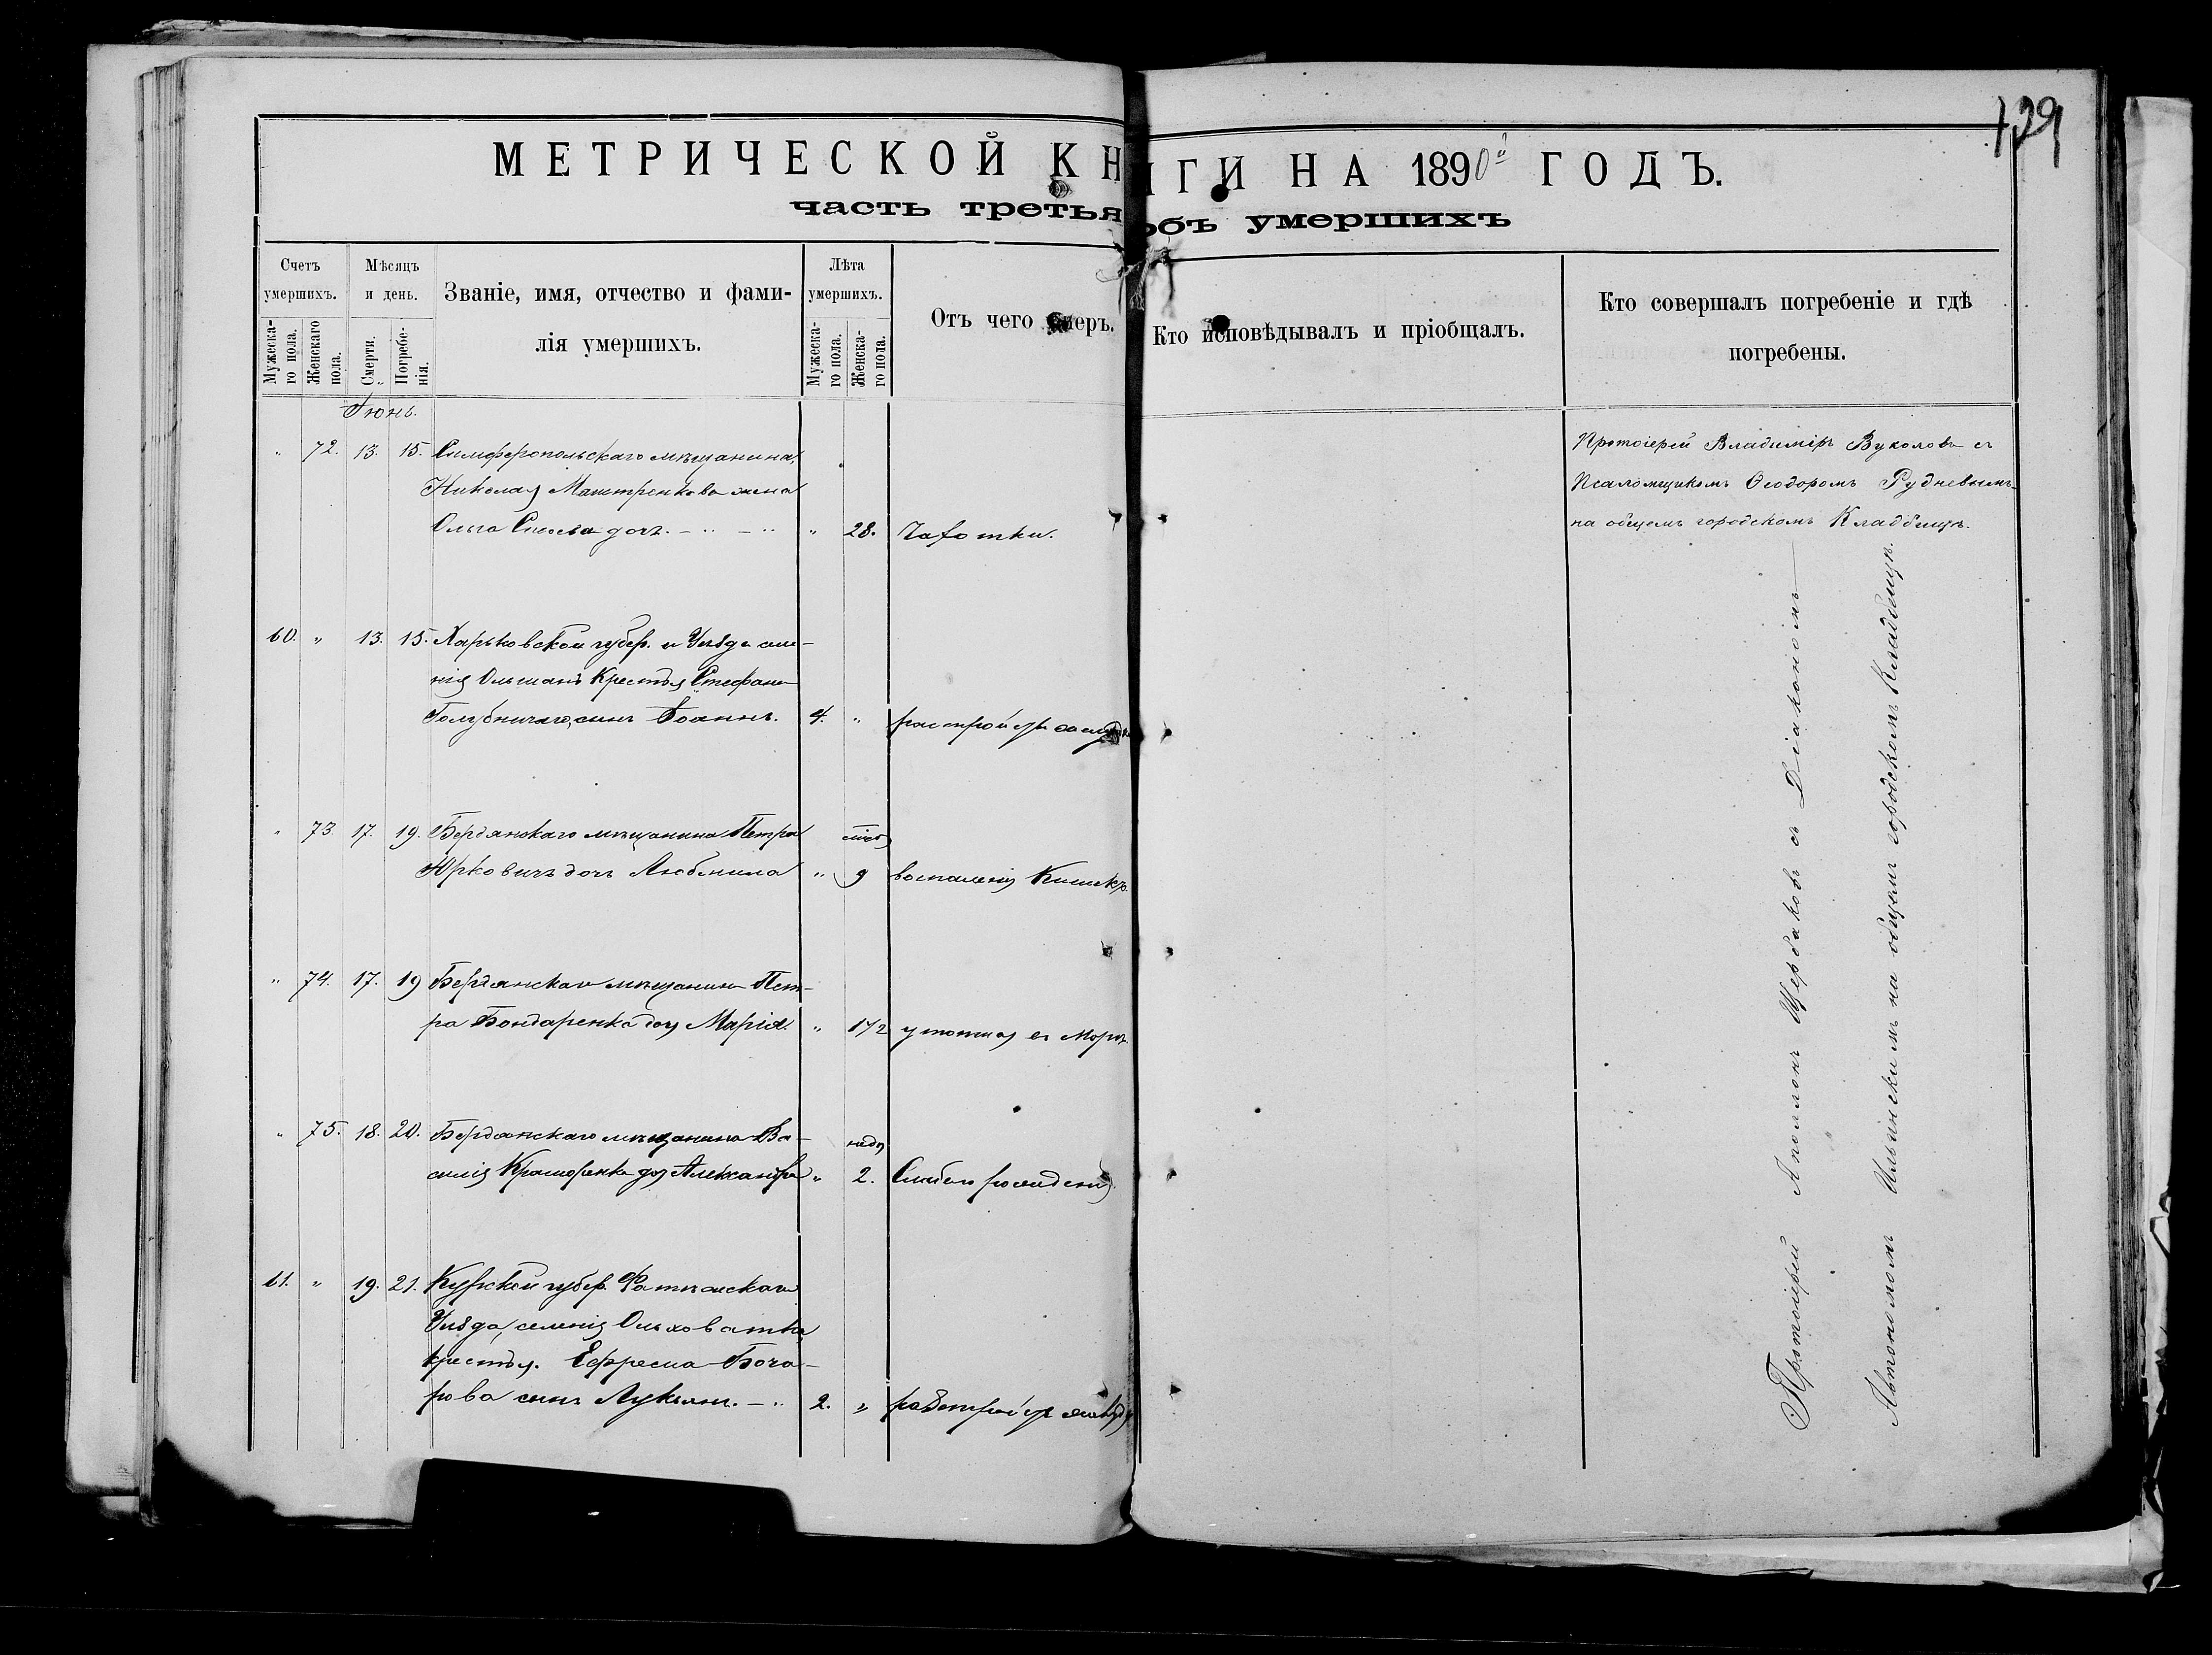 139
МЕТРИЧЕСКОЙ КНИГИ НА 1890й ГОДЪ.
часть третья объ умершихъ
Счетъ умершихъ.
Мужеска-го пола.
Женскаго пола.
Мѣсяцъ и день.
Смерти.
Погребе-нія.
Званіе, имя, отчество и фами-
лія умершихъ.
Лѣта умершихъ.
Мужеска-го пола.
Женска-го пола.
Отъ чего умеръ.
Кто исповѣдывалъ и пріобщалъ.
Кто совершалъ погребеніе и гдѣ
погребены.
Іюнь.
" 72. 13. 15. Симферопольскаго мѣщанина,
Николая жена
Ольга дочь. " 28. Чахотки.
Протоіерей Владиміръ Вуколовъ съ
Псаломщикомъ Ѳеодоромъ Рудневымъ
на общемъ городскомъ Кладбищѣ.
60. " 13. 15. Харьковской губер. и Уѣзда селе-
нія Ольшанъ Крестья Стефана
Голубничаго, сынъ Іоаннъ. 4. "
" 73. 17. 19. Бердянскаго мѣщанина Петра
Юрковичъ дочь Людмила " 9 воспаленія Кишекъ.
" 74. 17. 19 Бердянскаго мѣщанина Пет-
ра Бондаренка дочь Марія. " 1 1/2 утопшая въ Морѣ.
" 75. 18. 20. Бердянскаго мѣщанина Ва-
силія дочь Александра " 2. рожденія.
61. " 19. 21. Курской губер. Фатежскаго
Уѣзда, селенія Ольховатки
крестья. Ефрема Боча-
рова сынъ Лукьянъ. 2. "
Протоіерей Аполлонъ Щербаковъ съ Діакономъ
Автономомъ Ильинскимъ на общемъ городскомъ Кладбищѣ.